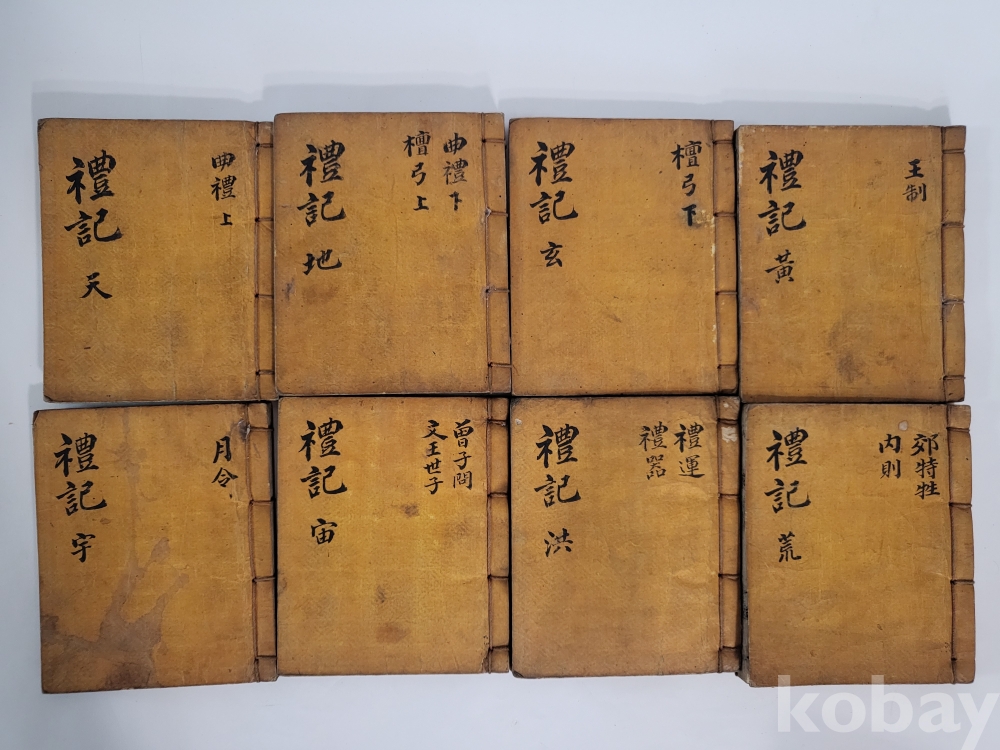 禮記 天
曲禮上
禮記 地
曲禮下
檀弓上
禮記 玄
檀弓下
禮記 黃
王制
禮記 宇
月令
禮記 宙
曾子問
文王世子
禮記 洪
禮運
禮器
禮記 荒
郊特牲
內則
kobay